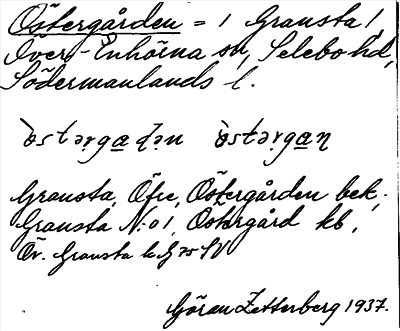 Östergården = 1 Gransta 1,
Över-Enhörna sn, Selebo hd,
Södermanlands l.
`östərga̲ḍən `östərga̲ṇ
Gransta, Öfre, Östergården bek.;
Gransta N:o 1, Östergård kb,
Öv. Gransta k G 75 SV
Göran Zetterberg 1937.